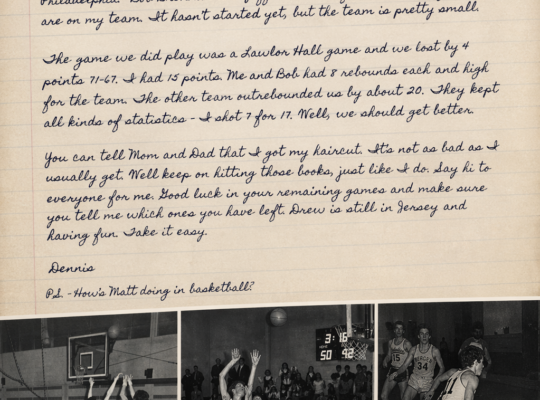 Philadelphia.
are on my team. It hasn't started yet, but the team is pretty small.
The game we did play was a Lawlor Hall game and we lost by 4
points 71-67. I had 15 points. Me and Bob had 8 rebounds each and high
for the team. The other team outrebounded us by about 20. They kept
all kinds of statistics - I shot 7 for 17. Well, we should get better.
You can tell Mom and Dad that I got my haircut. It's not as bad as I
usually get. Well keep on hitting those books, just like I do. Say hi to
everyone for me. Good luck in your remaining games and make sure
you tell me which ones you have left. Drew is still in Jersey and
having fun. Take it easy.
Dennis
P.S. - How's Matt doing in basketball?
3:16
50 92
15
34